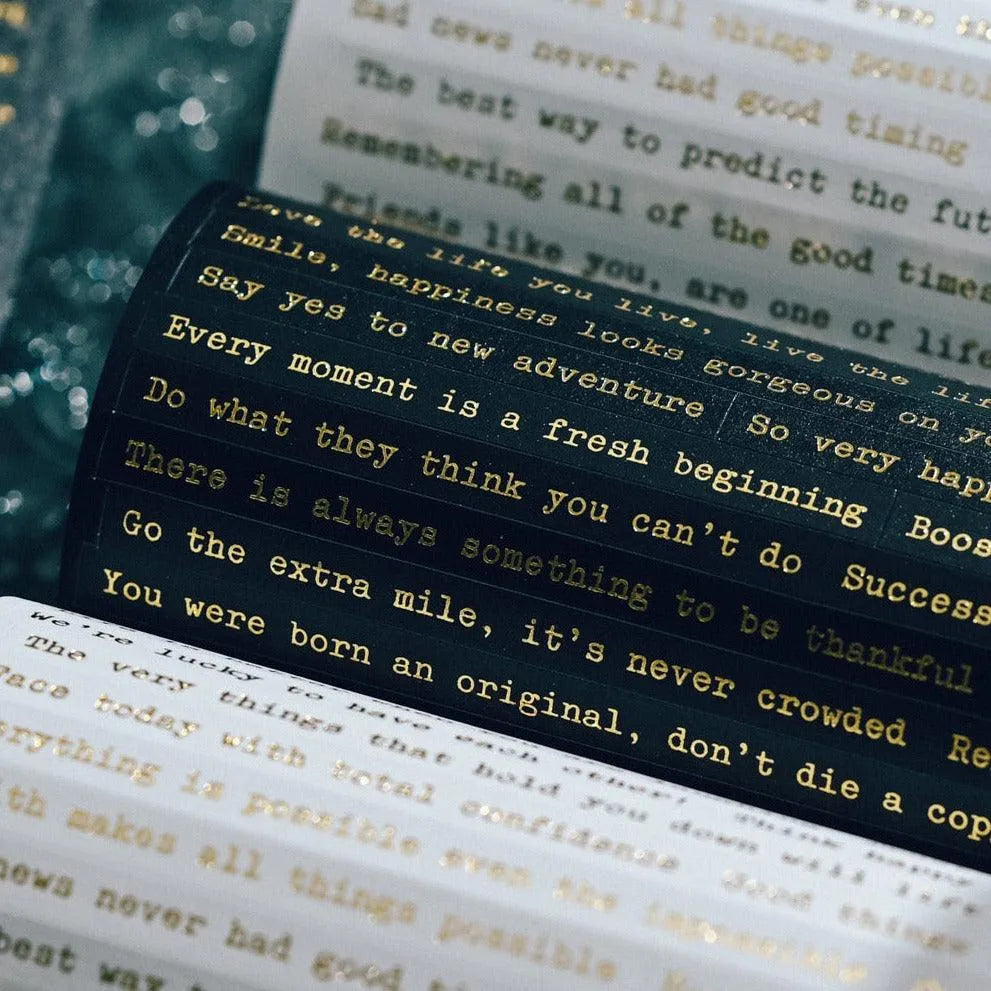 all things possible
Bad news never had good timing
The best way to predict the fut
Remembering all of the good times
Friends like you, are one of life
Love the life you live, live the lif
Smile, happiness looks gorgeous on yo
Say yes to new adventure So very happ
Every moment is a fresh beginning Boos
Do what they think you can't do Success
There is always something to be thankful
Go the extra mile, it's never crowded Re
You were born an original, don't die a cop
We're lucky to have each other, Think happy
The very things that hold you down will lift
Face today with total confidence Good things
erything is possible even the impossible
th makes all things possible
news never had good t
best way